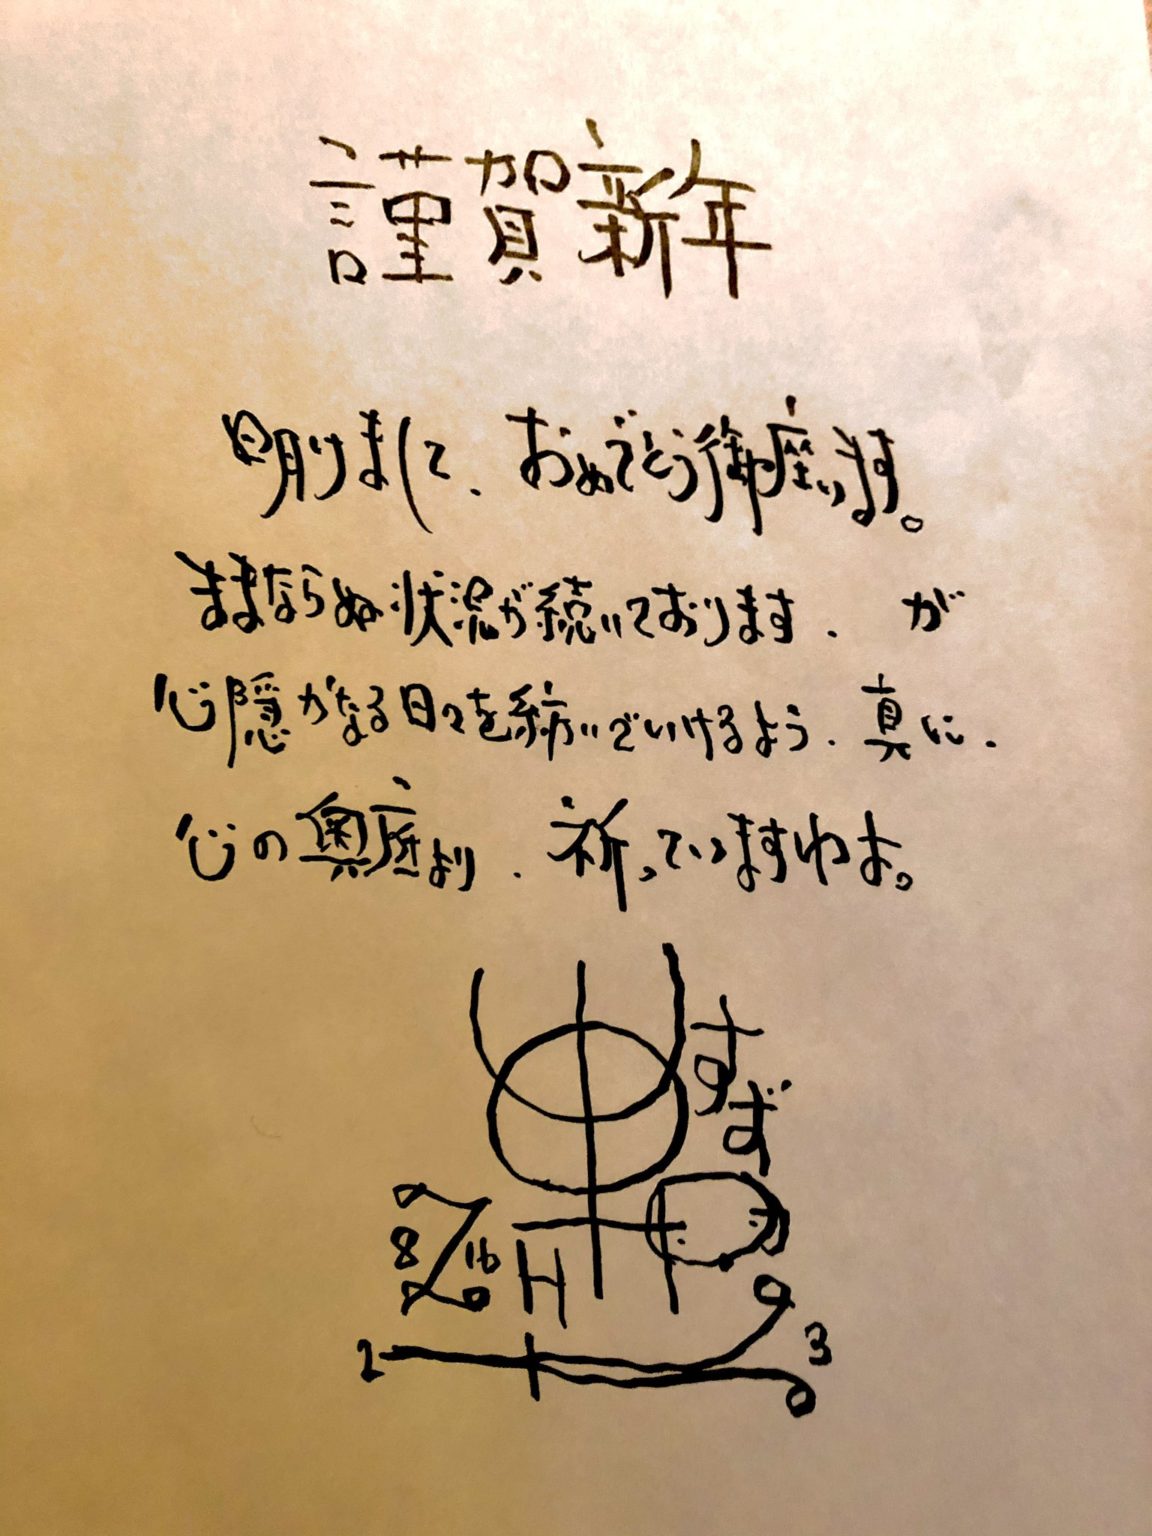 謹賀新年
明けまして、おめでとう御座います。
ままならぬ状況が続いております、 が
心隠かなる日々を紡いでいけるよう、真に、
心の奥底より、祈っていますわよ。
すず
か
8
16
Z
H
2
3